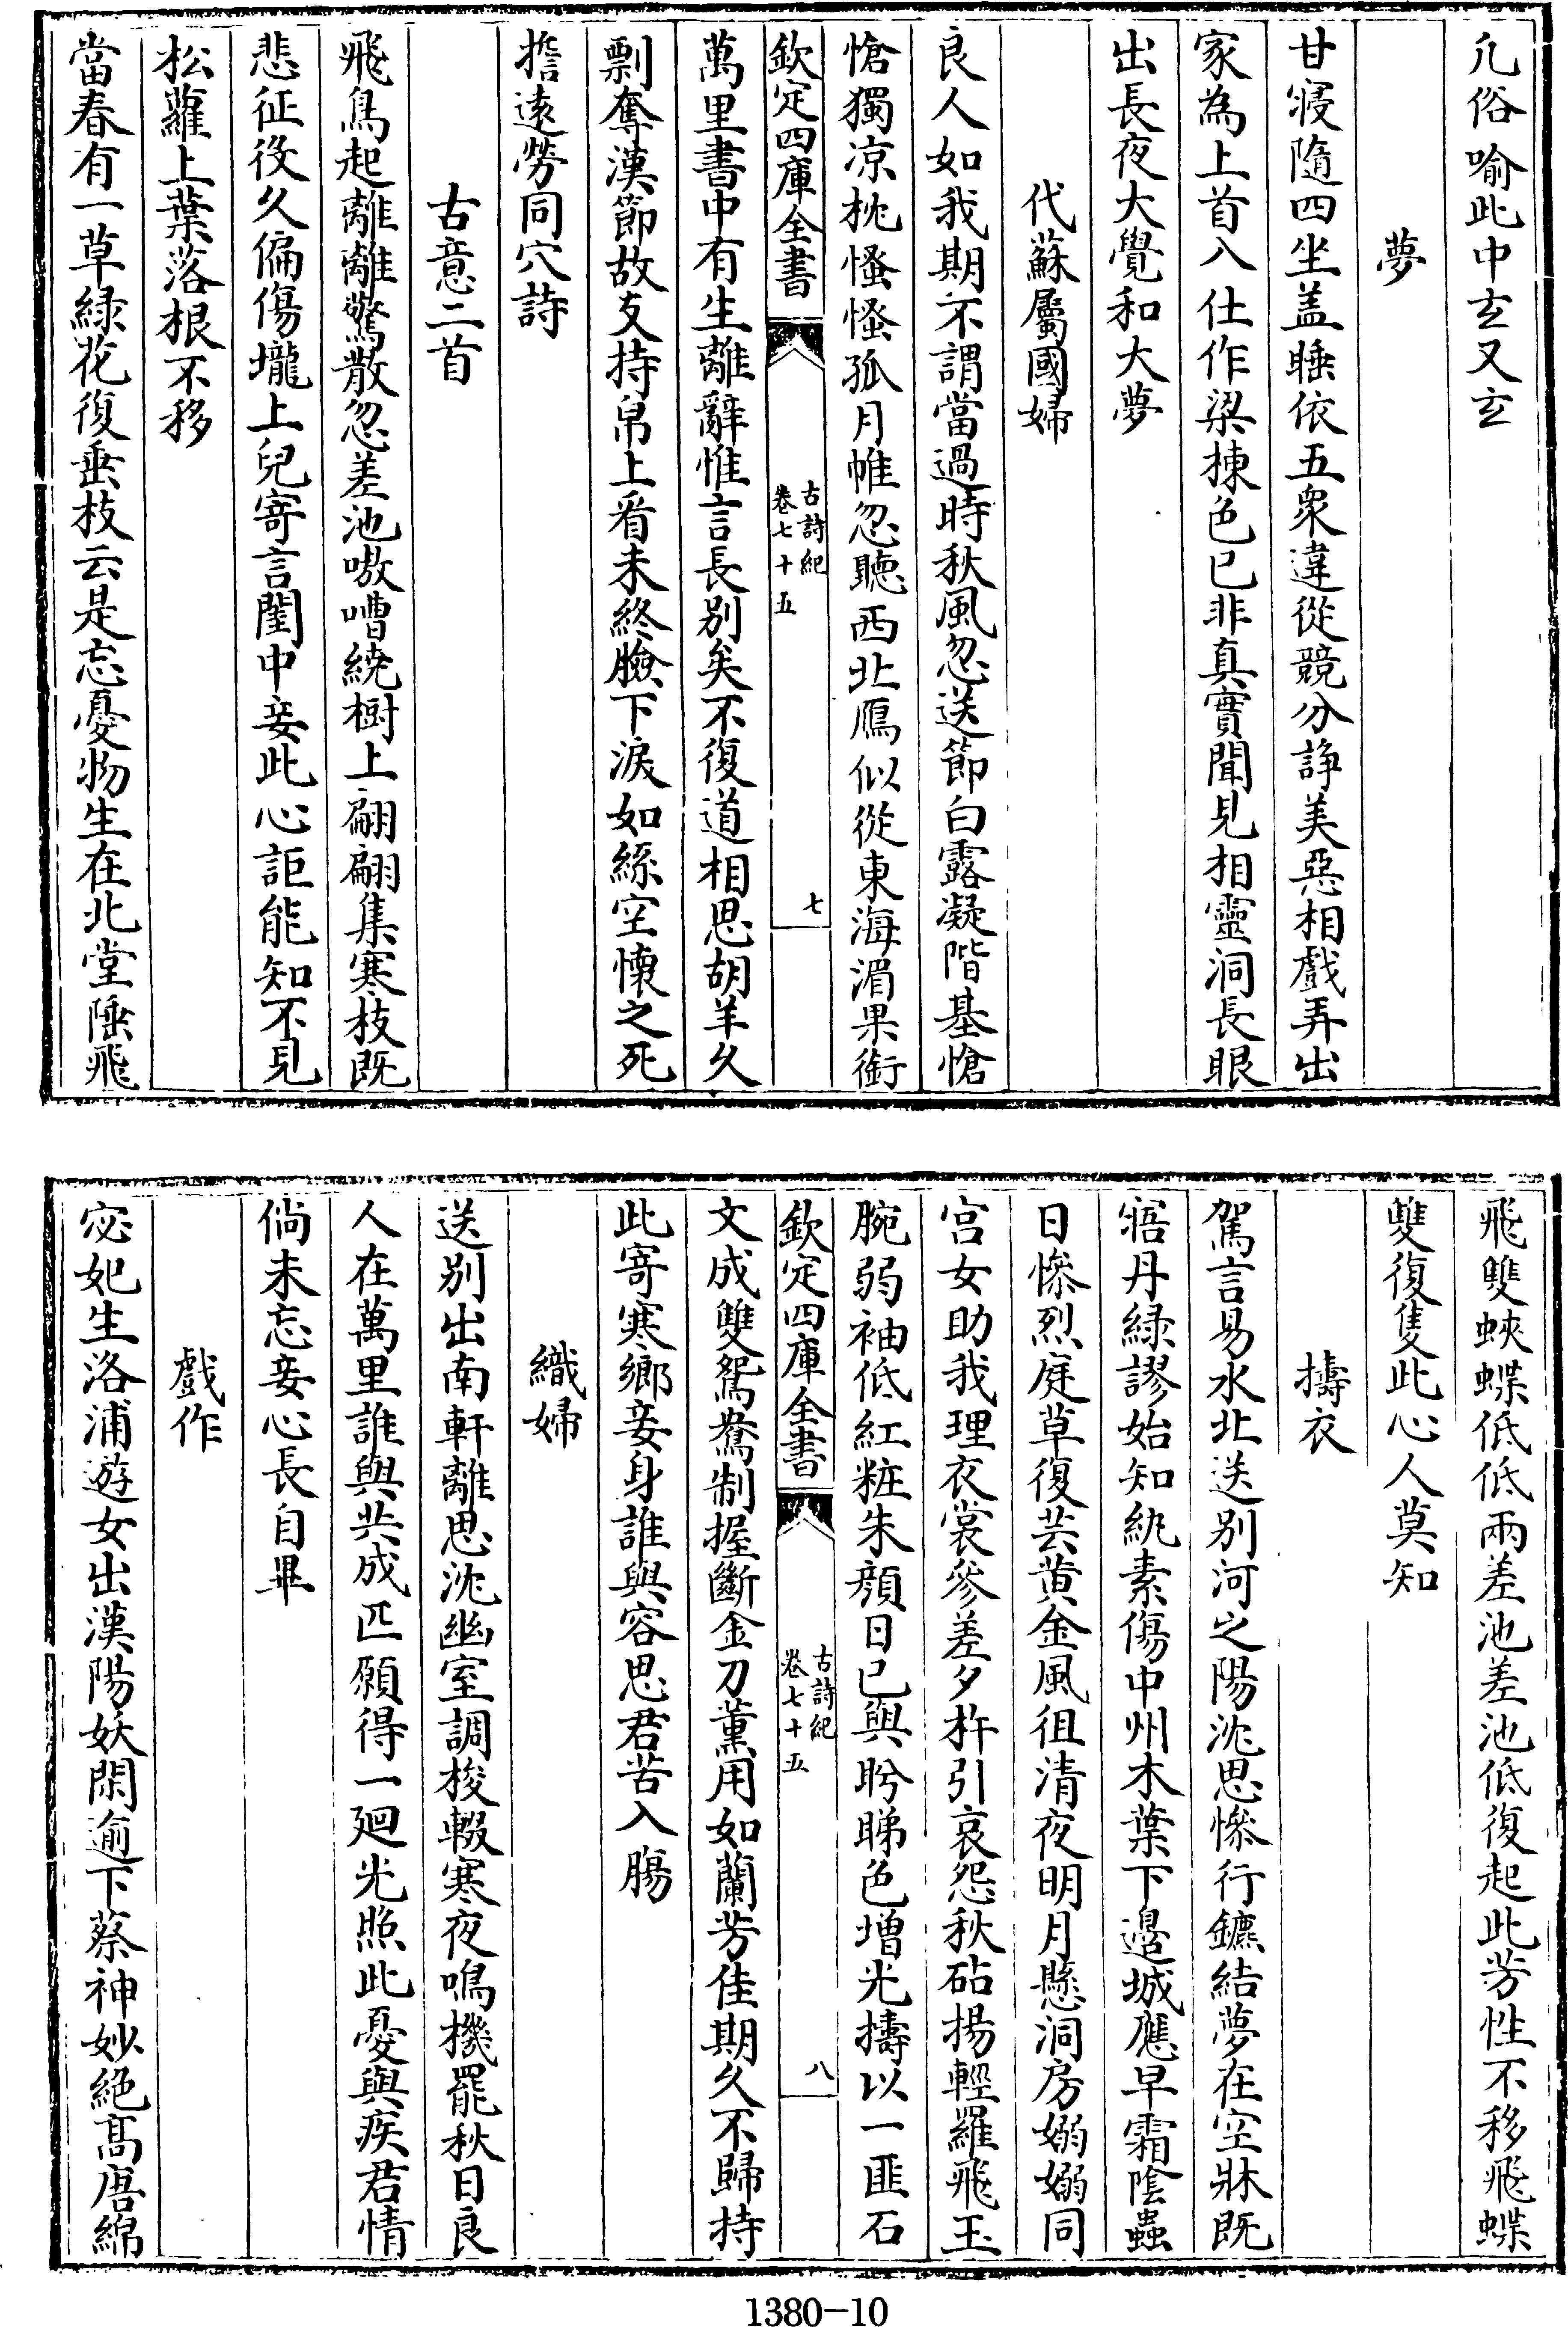 凢俗喻此中玄又玄
夢
甘寢隨四坐盖睡依五衆違從競分諍美惡相戲弄出
家為上首入仕作梁棟色已非真實聞見相靈洞長眼
出長夜大覺和大夢
代蘇屬國婦
良人如我期不謂當過時秋風忽送節白露凝階基愴
愴獨凉枕慅慅孤月帷忽聽西北鴈似從東海湄果銜
欽定四庫全書
古詩紀
卷七十五
七
萬里書中有生離辭惟言長别矣不復道相思胡羊久
剽奪漢節故支持帛上㸔未終臉下淚如絲空懐之死
擔逺勞同穴詩
古意二首
飛鳥起離離驚散忽差池嗷嘈繞樹上翩翩集寒枝既
悲征役久偏傷壠上兒寄言閨中妾此心詎能知不見
松蘿上葉落根不移
當春有一草綠花復垂枝云是忘憂物生在北堂陲飛
飛雙蛺蝶低低兩差池差池低復起此芳性不移飛蝶
雙復隻此心人莫知
擣衣
駕言易水北送别河之陽沈思慘行鑣結夢在空牀既
寤丹綠謬始知紈素傷中州木葉下邉城應早霜隂蟲
日慘烈庭草復芸黄金風徂清夜明月懸洞房嫋嫋同
宫女助我理衣裳參差夕杵引哀怨秋砧揚輕羅飛玉
腕弱袖低紅粧朱顔日已興眄睇色增光擣以一匪石
欽定四庫全書
古詩紀
卷七十五
八
文成雙鴛鴦制握斷金刀薰用如蘭芳佳期久不歸持
此寄寒鄉妾身誰與容思君苦入腸
織婦
送别出南軒離思沈幽室調梭輟寒夜鳴機罷秋日良
人在萬里誰與共成匹願得一廻光照此憂與疾君情
倘未忘妾心長自畢
戲作
宓妃生洛浦遊女出漢陽妖閑逾下蔡神妙絶髙唐綿
1380-10